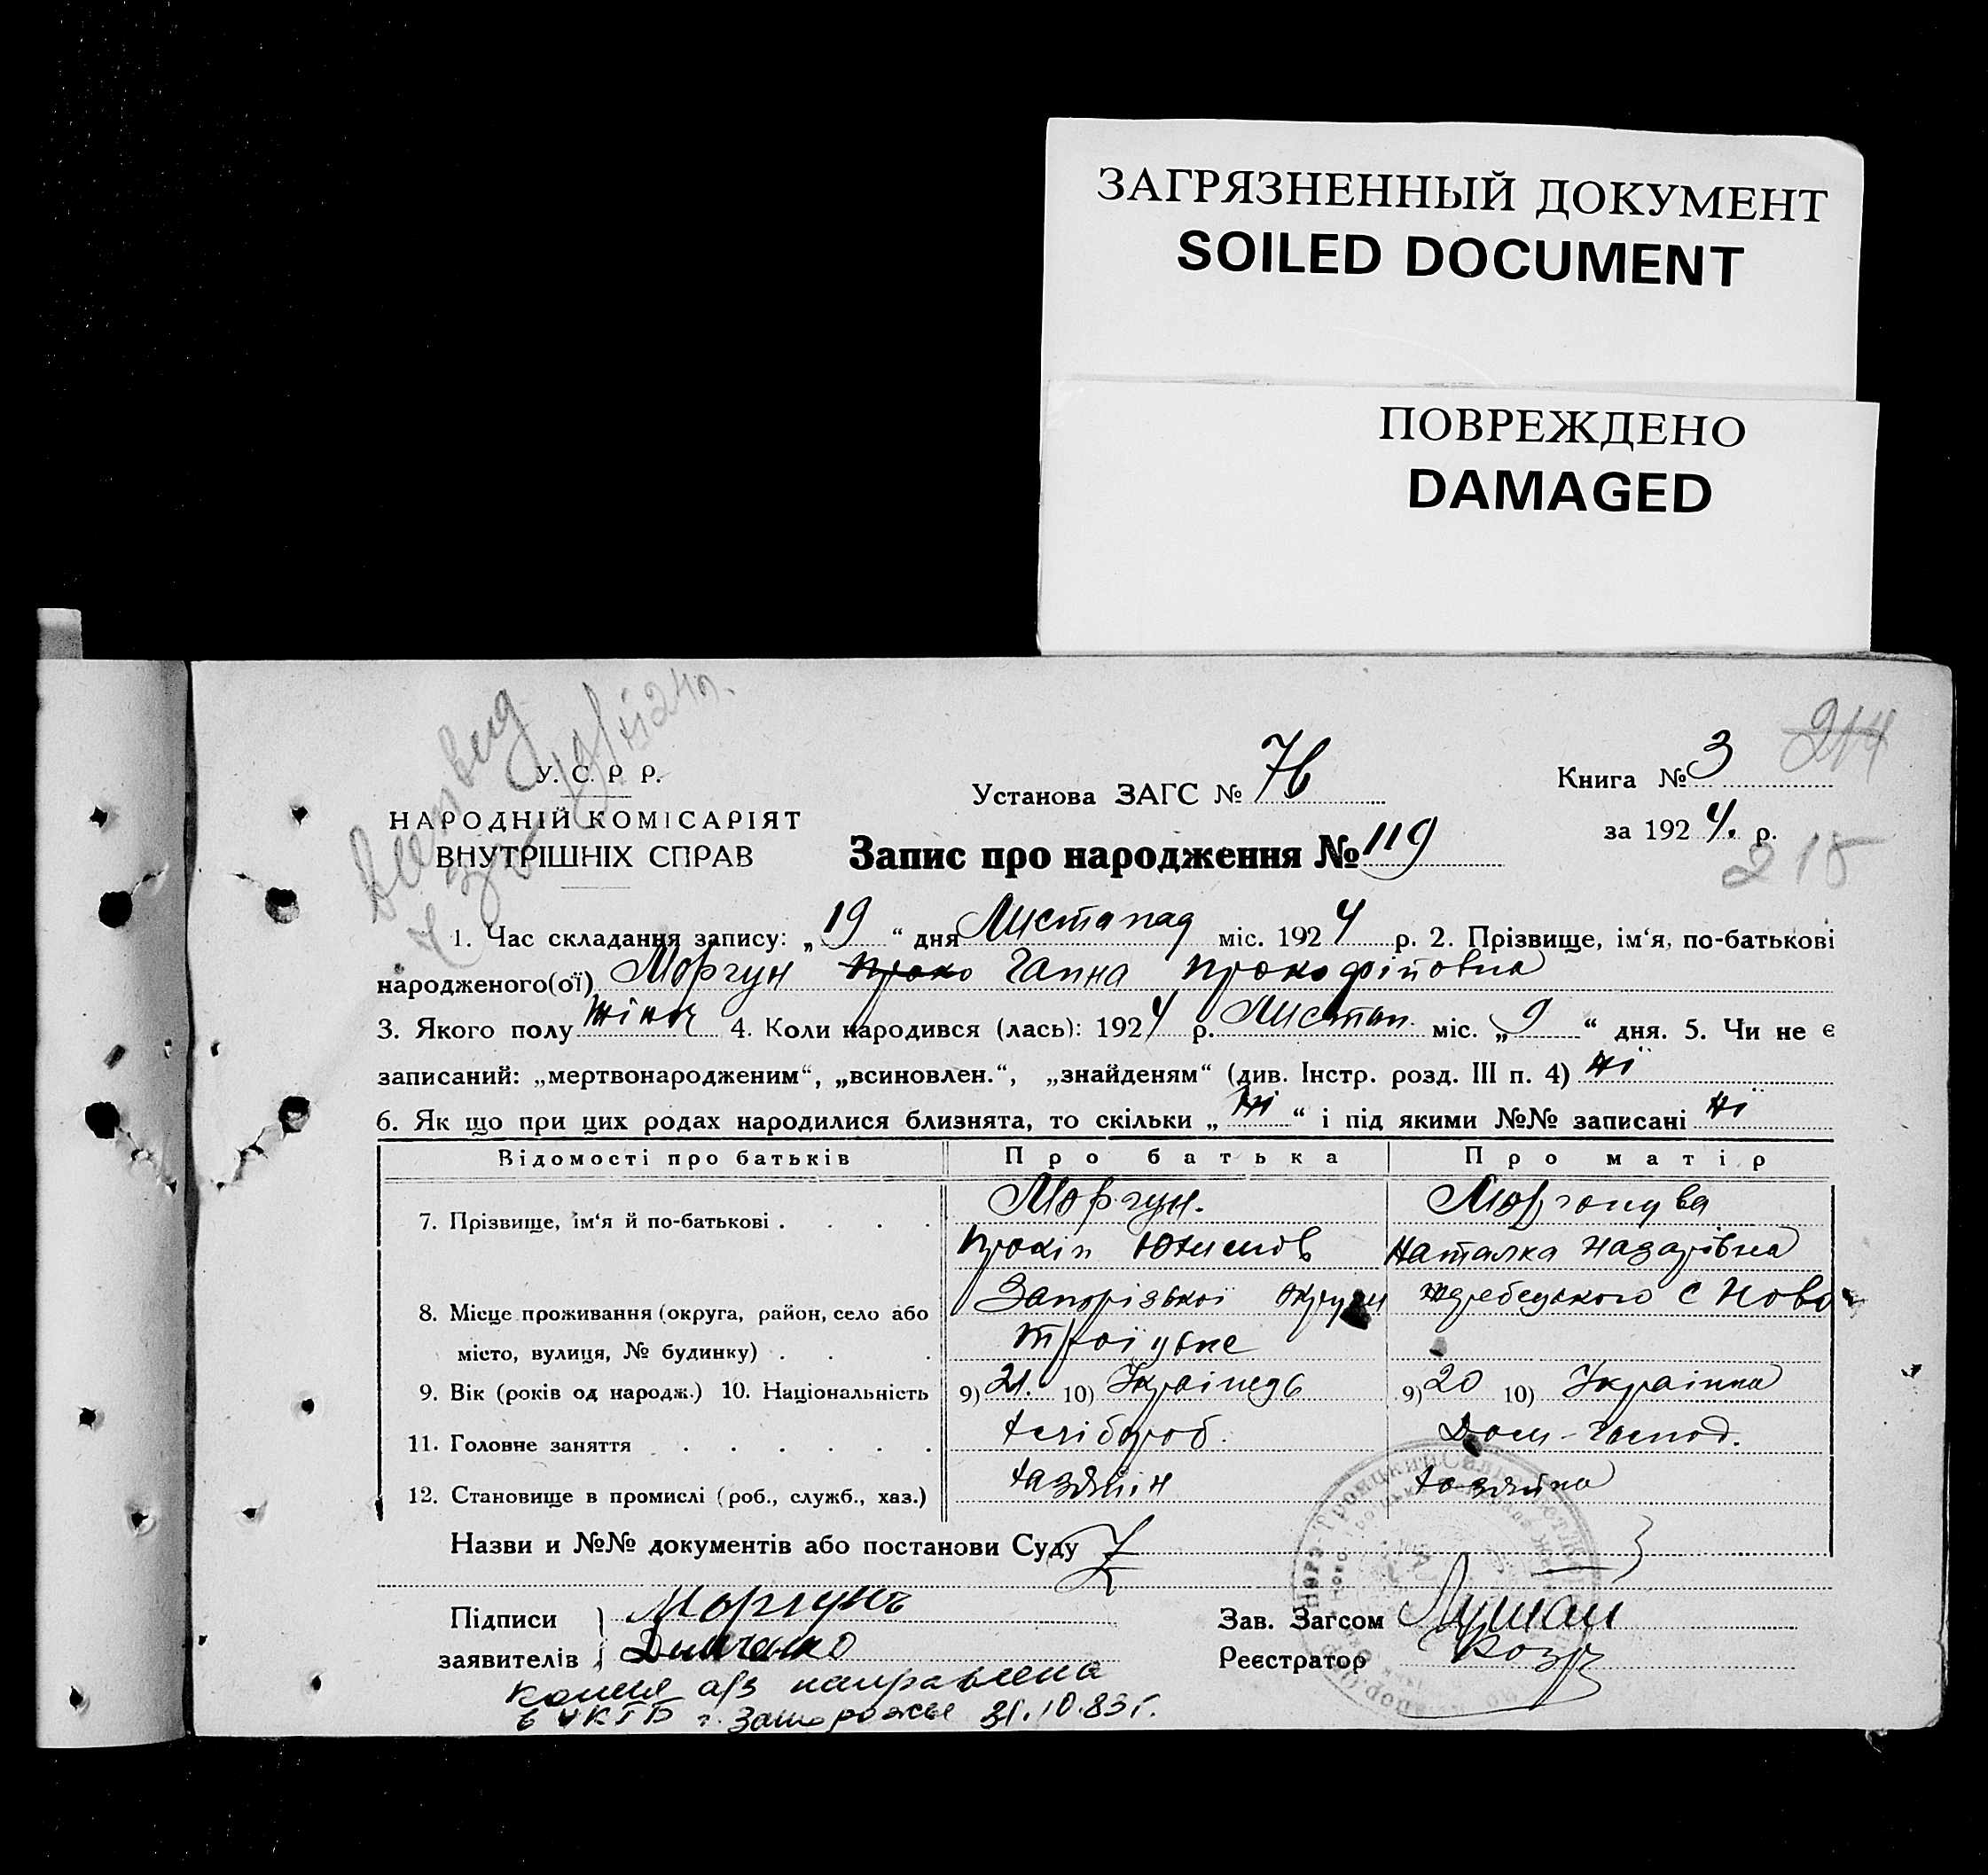 ЗАГРЯЗНЕННЫЙ ДОКУМЕНТ
SOILED DOCUMENT
ПОВРЕЖДЕНО
DAMAGED
214
У. С. Р Р.
НАРОДНІЙ КОМІСАРІЯТ
ВНУТРІШНІХ СПРАВ
Установа ЗАГС № 76
Книга № 3
за 1924. р.
215
Запис про народження № 119
1. Час складання запису: „19“ дня Листопад міс. 1924 р. 2. Прізвище, ім‘я, по-батькові
народженого(ої) Моргун Проко Гапна Прокофійовна
3. Якого полу жіноч 4. Коли народився (лась): 1924 р. Листоп. міс. „9“ дня. 5. Чи не є
записаний: „мертвонародженим“, „всиновлен.“, „знайденям“ (див. Інстр. розд. III п. 4) ні
6. Як що при цих родах народилися близнята, то скільки „ні“ і під якими №№ записані ні
Відомості про батьків Про батька Про матір
7. Прізвище, ім‘я й по-батькові . . . . Моргун.
Прокіп Наталка Назарівна
8. Місце проживання (округа, район, село або Запорізької округи Жеребецького с Ново
місто, вулиця, № будинку) . . . Троїцьке
9. Вік (років од народж.) 10. Національність 9) 21. 10) Українець 9) 20 10) Українка
11. Головне заняття . . . . . . Хлібороб. Дом-господ.
12. Становище в промислі (роб., служб., хаз.) Хазяїн Хазяйка
Назви и №№ документів або постанови Суду
Підписи Моргунъ
заявителів
Зав. Загсом
Реєстратор
копия а/з направлена
в УКГБ г. Запорожье 31.10.83г.